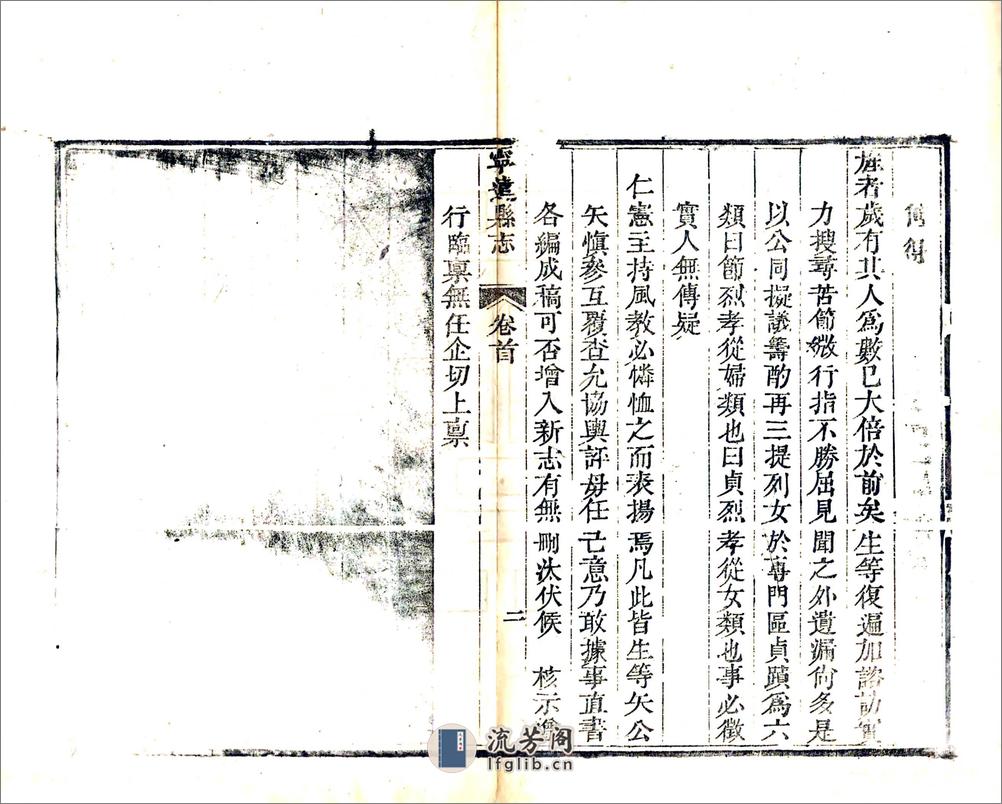 旌者歲有其人爲數已大倍於前矣生等復遍加諮訪實
力搜尋苦節微行指不勝屈見聞之外遺漏尙多是
以公同擬議籌酌再三提列女於專門區貞蹟爲六
類曰節烈孝從婦類也曰貞烈孝從女類也事必徵
實人無傳疑
仁憲主持風敎必憐恤之而表揚焉凡此皆生等矢公
矢愼參互覆查允協輿評毋任己意乃敢據事直書
各編成稿可否增入新志有無刪汰伏候 核示
寧遠縣志 卷首 二
行臨稟無任企切上稟
流芳阁
lfglib.cn